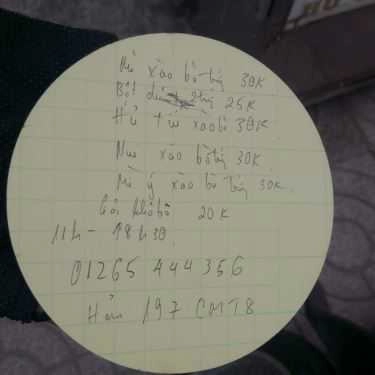 Mì xào bò trứng 30K
Bột chiên trứng 25K
Hủ tíu xào bò 30K
Nui xào bò trứng 30K
Mì ý xào bò trứng 30K
Gỏi khô bò 20K
11h - 18h30
01265 444 356
Hẻm 197 CMT8